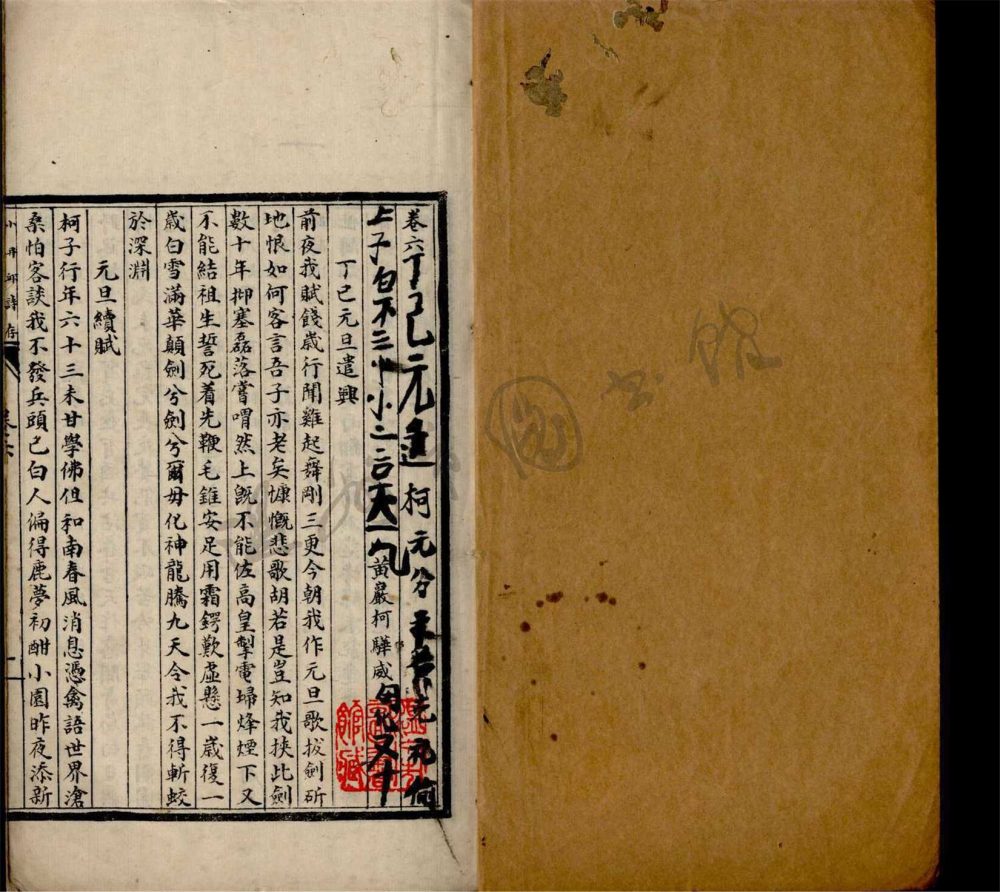 卷六丁巳元
上
黃巖柯驊威
丁巳元旦遣興
前夜我賦餞歲行聞雞起舞剛三更今朝我作元旦歌拔劍斫
地恨如何客言吾子亦老矣慷慨悲歌胡若是豈知我挾此劍
數十年抑塞磊落嘗喟然上既不能佐高皇掣電埽烽煙下又
不能結祖生誓死着先鞭毛錐安足用霜鍔歎虛懸一歲復一
歲白雪滿華顛劍兮劍兮爾毋化神龍騰九天令我不得斬蛟
於深淵
元旦續賦
柯子行年六十三未甘學佛但和南春風消息憑禽語世界滄
桑怕客談我不發兵頭已白人偏得鹿夢初酣小園昨夜添新
小丹邱詩存
卷六